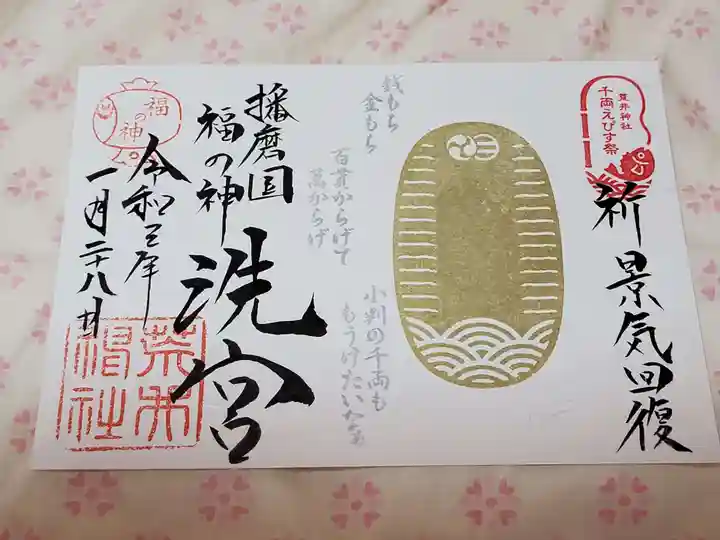 荒井神社
千両えびす祭
祈景気回復
銭もち
金もち
百貫からげて
萬からげ
小判の千両も
もうけたいなあ
播磨国
福の神
洗宮
福の神
令和三年
一月二十八日
荒井神社